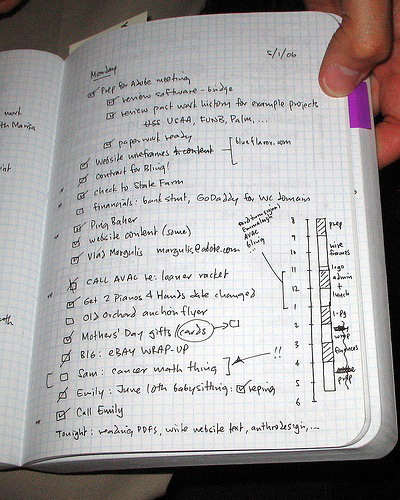 work
th Marisa
int
5/1/06
Monday
Prep for Adobe meeting
review software - bridge
review past work history for example projects
USS USAA, FUNB, Palm, ...
paperwork ready
Website wireframes + content
blueflavor.com
Contract for Bling!
check to State Farm
financials: bank stmt, GoDaddy for WC domain
Ping Baker
website content (some)
Vlad Margulis margulis@adobe.com
CALL AVAC re: loaner racket
Get 2 Pianos 4 Hands date changed
Old Orchard anchor flyer
Mothers' Day gifts (cards)
BIG: eBAY WRAP-UP
Sam: cancer month thing
!!
Emily: June 10th babysitting: replied
Call Emily
Tonight: reading PDFs, write website text, anthrodesign, ...
AVAC
bling
...
8
9
10
11
12
1
2
3
4
5
6
prep
wire
frames
logo
admin
+
lunch
1-pg
wrap
finances
prep